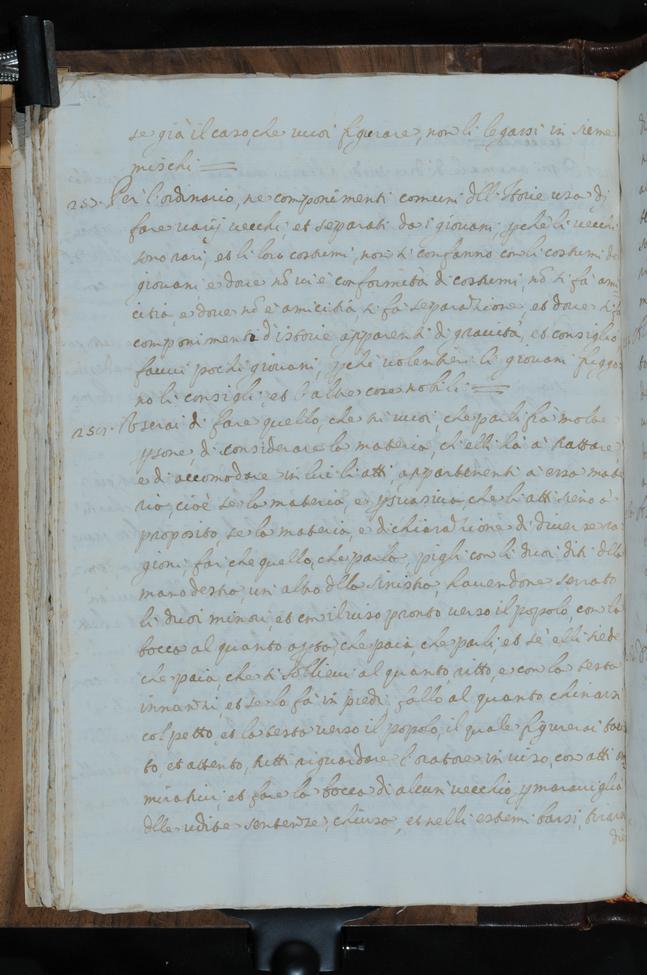 se già il caso, che vuoi figurare, non li legassi in sieme
mischi
253. Per l'ordinario, ne componimenti comuni dell'Istorie usa di
fare varij vecchi, et separati da i giovani, pche li vecchi
sono rari, et li loro costumi, non si confanno con li costumi de
giovani e dove nō vi è conformità di costumi nō si fà ami
citia, e dove nō è amicitia si fà separazione, et dove si fà
componimenti d'istorie apparenti di gravità, et consiglio
favvi pochi giovani, pche volentieri li giovani fuggo
no li consigli, et l'altre cose nobili
254. Userai di fare quello, che tu vuoi, che parli frà molte
psone, di considerare la materia, ch'elli hà a trattare
e di accomodare in lui li atti, appartenenti a essa mate
ria, cioè se la materia, e psuasiva, che li atti sieno a
proposito, se la materia, e di chiarazione di diverse ra
gioni, fai, che quello, che parla, pigli con li duoi diti della
mano destra, un' dito della sinistra, havendone serrato
li duoi minori, et con il viso pronto verso il popolo, con la
bocca al quanto apta, che paia, che parli et se' elli siede
che paia, che si sollievi al quanto ritto, e con la testa
innanzi, et se lo fà in piedi fallo al quanto chinarsi
col petto, et la testa verso il popolo, il quale figurerai taci
to, et attento, tutti riguardare l'oratore in viso, con atti am
mirativi, et fare la bocca di alcun vecchio, p maraviglia
delle udite sentenze, chiusa, et nelli estremi bassi, tirarsi
die